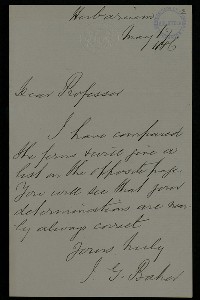 Herbarium
May 17
Dear Professor
I have compared
the ferns & will give a
list on the opposite page.
You will see that your
determinations are near-
ly always correct
Yours truly
J. G. Baker